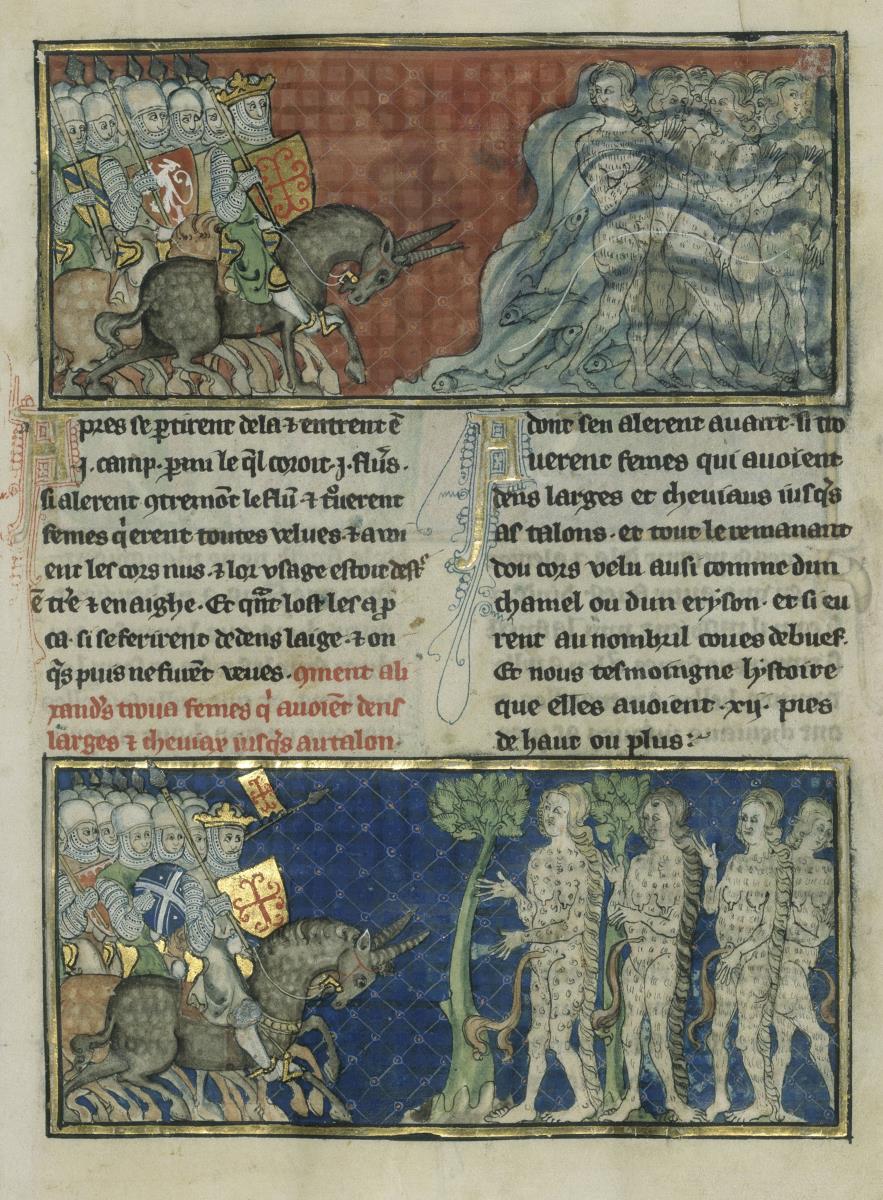 Apres se ptirent dela ⁊ entrent ē
.j. camp. pmi le q̄l coroit .j. fluȝ.
si alerent ɔtremōt le flū ⁊ tͬuerent
femes q̇ erent toutes velues ⁊ auoi
ent les cors nus. ⁊ lor vsage estoit
ē tͬre ⁊ en aighe. Et q̄nt lost les ap̱
ca. si se ferirent dedens laige. ⁊ on
q̄s puis ne furēt veues. ɔment ali
xandͬs troua femes q̇ auoiēt dens
larges ⁊ cheuiax iusq̄s au talon.
Adont sen alerent auant. si tro
uerent femes qui auoient
dens larges et cheuiaus iusq̄s
as talons. et tout le remanant
dou cors velu ausi comme dun
chamel ou dun eryson. et si eu
rent au nombril coues de buef.
Et nous tesmoingne lystoire
que elles auoient .xij. pies
de haut ou plus: